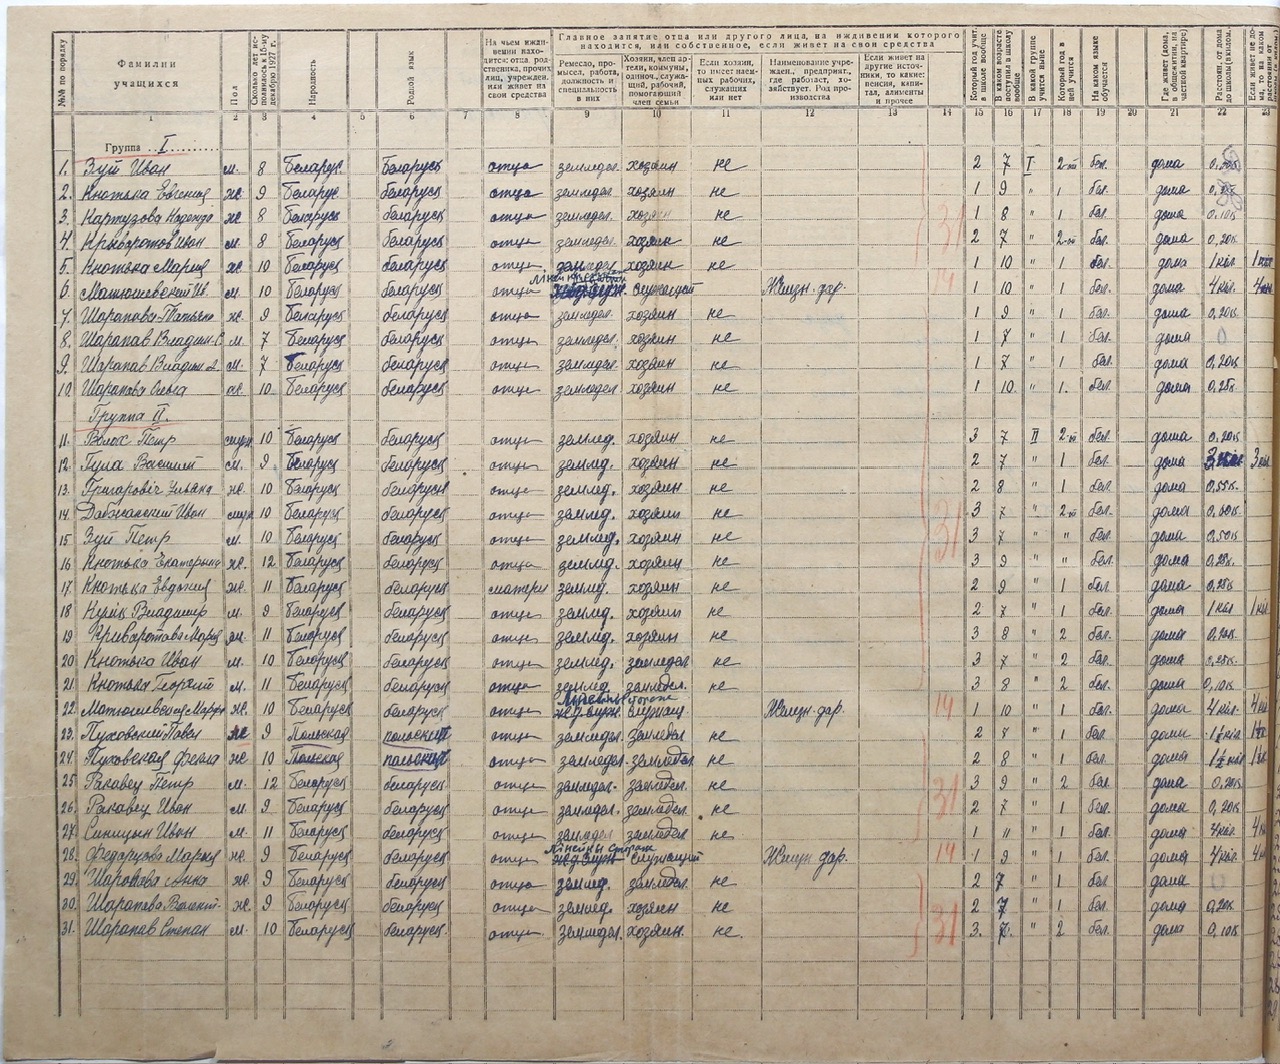 Главное занятие отца или другого лица, на иждивении которого
находится, или собственное, если живет на свои средства
№№ по порядку
Фамилии
учащихся
Пол
Сколько лет ис-
полнилось к 15-му
декабрю 1927 г.
Народность
Родной язык
На чьем ижди-
вении нахо-
дится: отца, род-
ственника, прочих
лиц, учрежден.
или живет на
свои средства
Ремесло, про-
мысел, работа,
должность и
специальность
в них
Хозяин, член ар-
тели, коммуны,
одиноч., служа-
щий, рабочий,
помогающий
член семьи
Если хозяин,
то имеет наем-
ных рабочих,
служащих
или нет
Наименование учре-
жден., предприят.,
где работает, хо-
зяйствует. Род про-
изводства
Если живет на
другие источ-
ники, то какие:
пенсия, капи-
тал, алименты
и прочее
Который год учит.
в школе вообще
В каком возрасте
поступил в школу
вообще
В какой группе
учится ныне
Который год в
ней учится
На каком языке
обучается
Где живет (дома,
в общежитии, на
частной квартире)
Расстоян. от дома
до школы (в килом.)
1 2 3 4 5 6 7 8 9 10 11 12 13 14 15 16 17 18 19 20 21 22 23
Группа I
1. Зуй Иван м. 8 Беларус. Беларуск отца земледел. хозяин не 2 7 I 2-й бел. дома
2. Кнотька Евгения же. 9 Беларус. беларуск отца земледел. хозяин не 1 9 " 1 бел. дома
3. Картузова Надежда же 8 Беларуск беларуск отца земледел. хозяин не 1 8 " 1 бел. дома 0,10к.
4. Криваротов Иван м. 8 Беларуск беларуск отца земледел. хозяин не 2 7 " 2-й бел. дома 0,20к.
5. Кнотька Мария же 10 Беларуск беларуск отца земледел хозяин не 1 10 " 1 бел. дома 1 кіл.
6. Матюшевский Ив. м. 10 Беларуск беларуск отца служащий Жел. дар. 1 10 " 1 бел. дома 4 кіл.
7. Шарапава Татьяна же. 9 Беларуск беларуск отца земледел. хозяин не 1 9 " 1 бел. дома 0,20к.
8. Шарапав Владим. С м. 7 Беларуск беларуск отца земледел. хозяин не 1 7 " 1 бел. дома 0
9. Шарапав Владим. м. 7 Беларуск беларуск отца земледел. хозяин не 1 7 " 1 бел. дома 0,20к
10. Шарапова Ольга же. 10 Беларуск беларуск отца земледел. хозяин не 1 10. " 1. бел. дома 0,25к.
Группа II.
11. Волох Пётр 10 Беларуск беларуск отца землед. хозяин не 3 7 II 2-й бел. дома 0,20к.
12. Гула Василий м. 9 Беларуск беларуск отца землед. хозяин не 2 7 " 1 бел. дома 3 кіл 3 кіл
13. Григаровіч Ульяна же. 10 Беларуск беларуск отца землед. хозяин не 2 8 " 1 бел. дома 0,55к.
14. Иван 10 Беларуск беларуск отца землед. хозяин не 3 7 " 2-й бел. дома
15 Зуй Петр м. 10 Беларуск беларуск отца землед. хозяин не 3 7 " " бел. дома 0,50к
16 Кнотька Екатерина же. 12 Беларуск беларуск отца землед. хозяин не 3 9 " " бел. дома 0,25к.
17. Кнотька Евдокия же. 11 Беларуск беларуск матери землед. хозяин не 2 9 " 1 бел. дома 0,25к
18 Владимир м. 9 Беларуск беларуск отца землед. хозяин не 2 7 " 1 бел. дома 1 кіл
19 Криваротава Мария 11 Беларуск беларуск отца землед. хозяин не 3 8 " 2 бел. дома
20 Кнотько Иван м. 10 Беларуск беларуск отца землед. земледел не 3 7 " 2 бел. дома 0,25к.
21 Кнотька Георгий м. 11 Беларуск беларуск отца землед. земледел. не 3 8 " 2 бел. дома 0,10к.
22. Матюшевская Мария же. 10 Беларуск беларуск отца служащ. Жел. дар. 1 10 " 1 бел. дома 4 кіл
23. Пуховский Павел же 9 Польская польский отца земледел. земледел не 2 7 " 1 бел. дома 1½ кіл.
24. Пуховская Фекла же 10 Польская польский отца земледел. земледел не 2 8 " 1 бел. дома 1½ кіл
25 Ракавец Петр м. 12 Беларуск беларуск отца земледел. земледел. не 3 9 " 2 бел. дома 0,20к
26. Ракавец Иван м. 9 Беларуск беларуск отца земледел. земледел. не 2 7 " 1 бел. дома 0,20к
27. Синицын Иван м. 11 Беларуск беларуск отца земледел земледел. не 1 11 " 1 бел. дома 4 кіл.
28. Федарцова Мария же. 9 Беларуск беларуск отца служащий Жел. дар. 1 9 " 1 бел. дома 4 кіл.
29. Шарапава Анна же. 9 Беларуск беларуск отца землед. земледел. не 2 7 " 1 бел. дома 0
30. Шарапава же. 9 Беларуск беларуск отца землед. хозяин не 2 7 " 1 бел. дома 0,20к
31. Шарапав Степан м. 10 Беларуск беларуск. отца земледел. хозяин. не 3. 7. " 2 бел. дома 0,10к
31
14
31
14
31
14
31